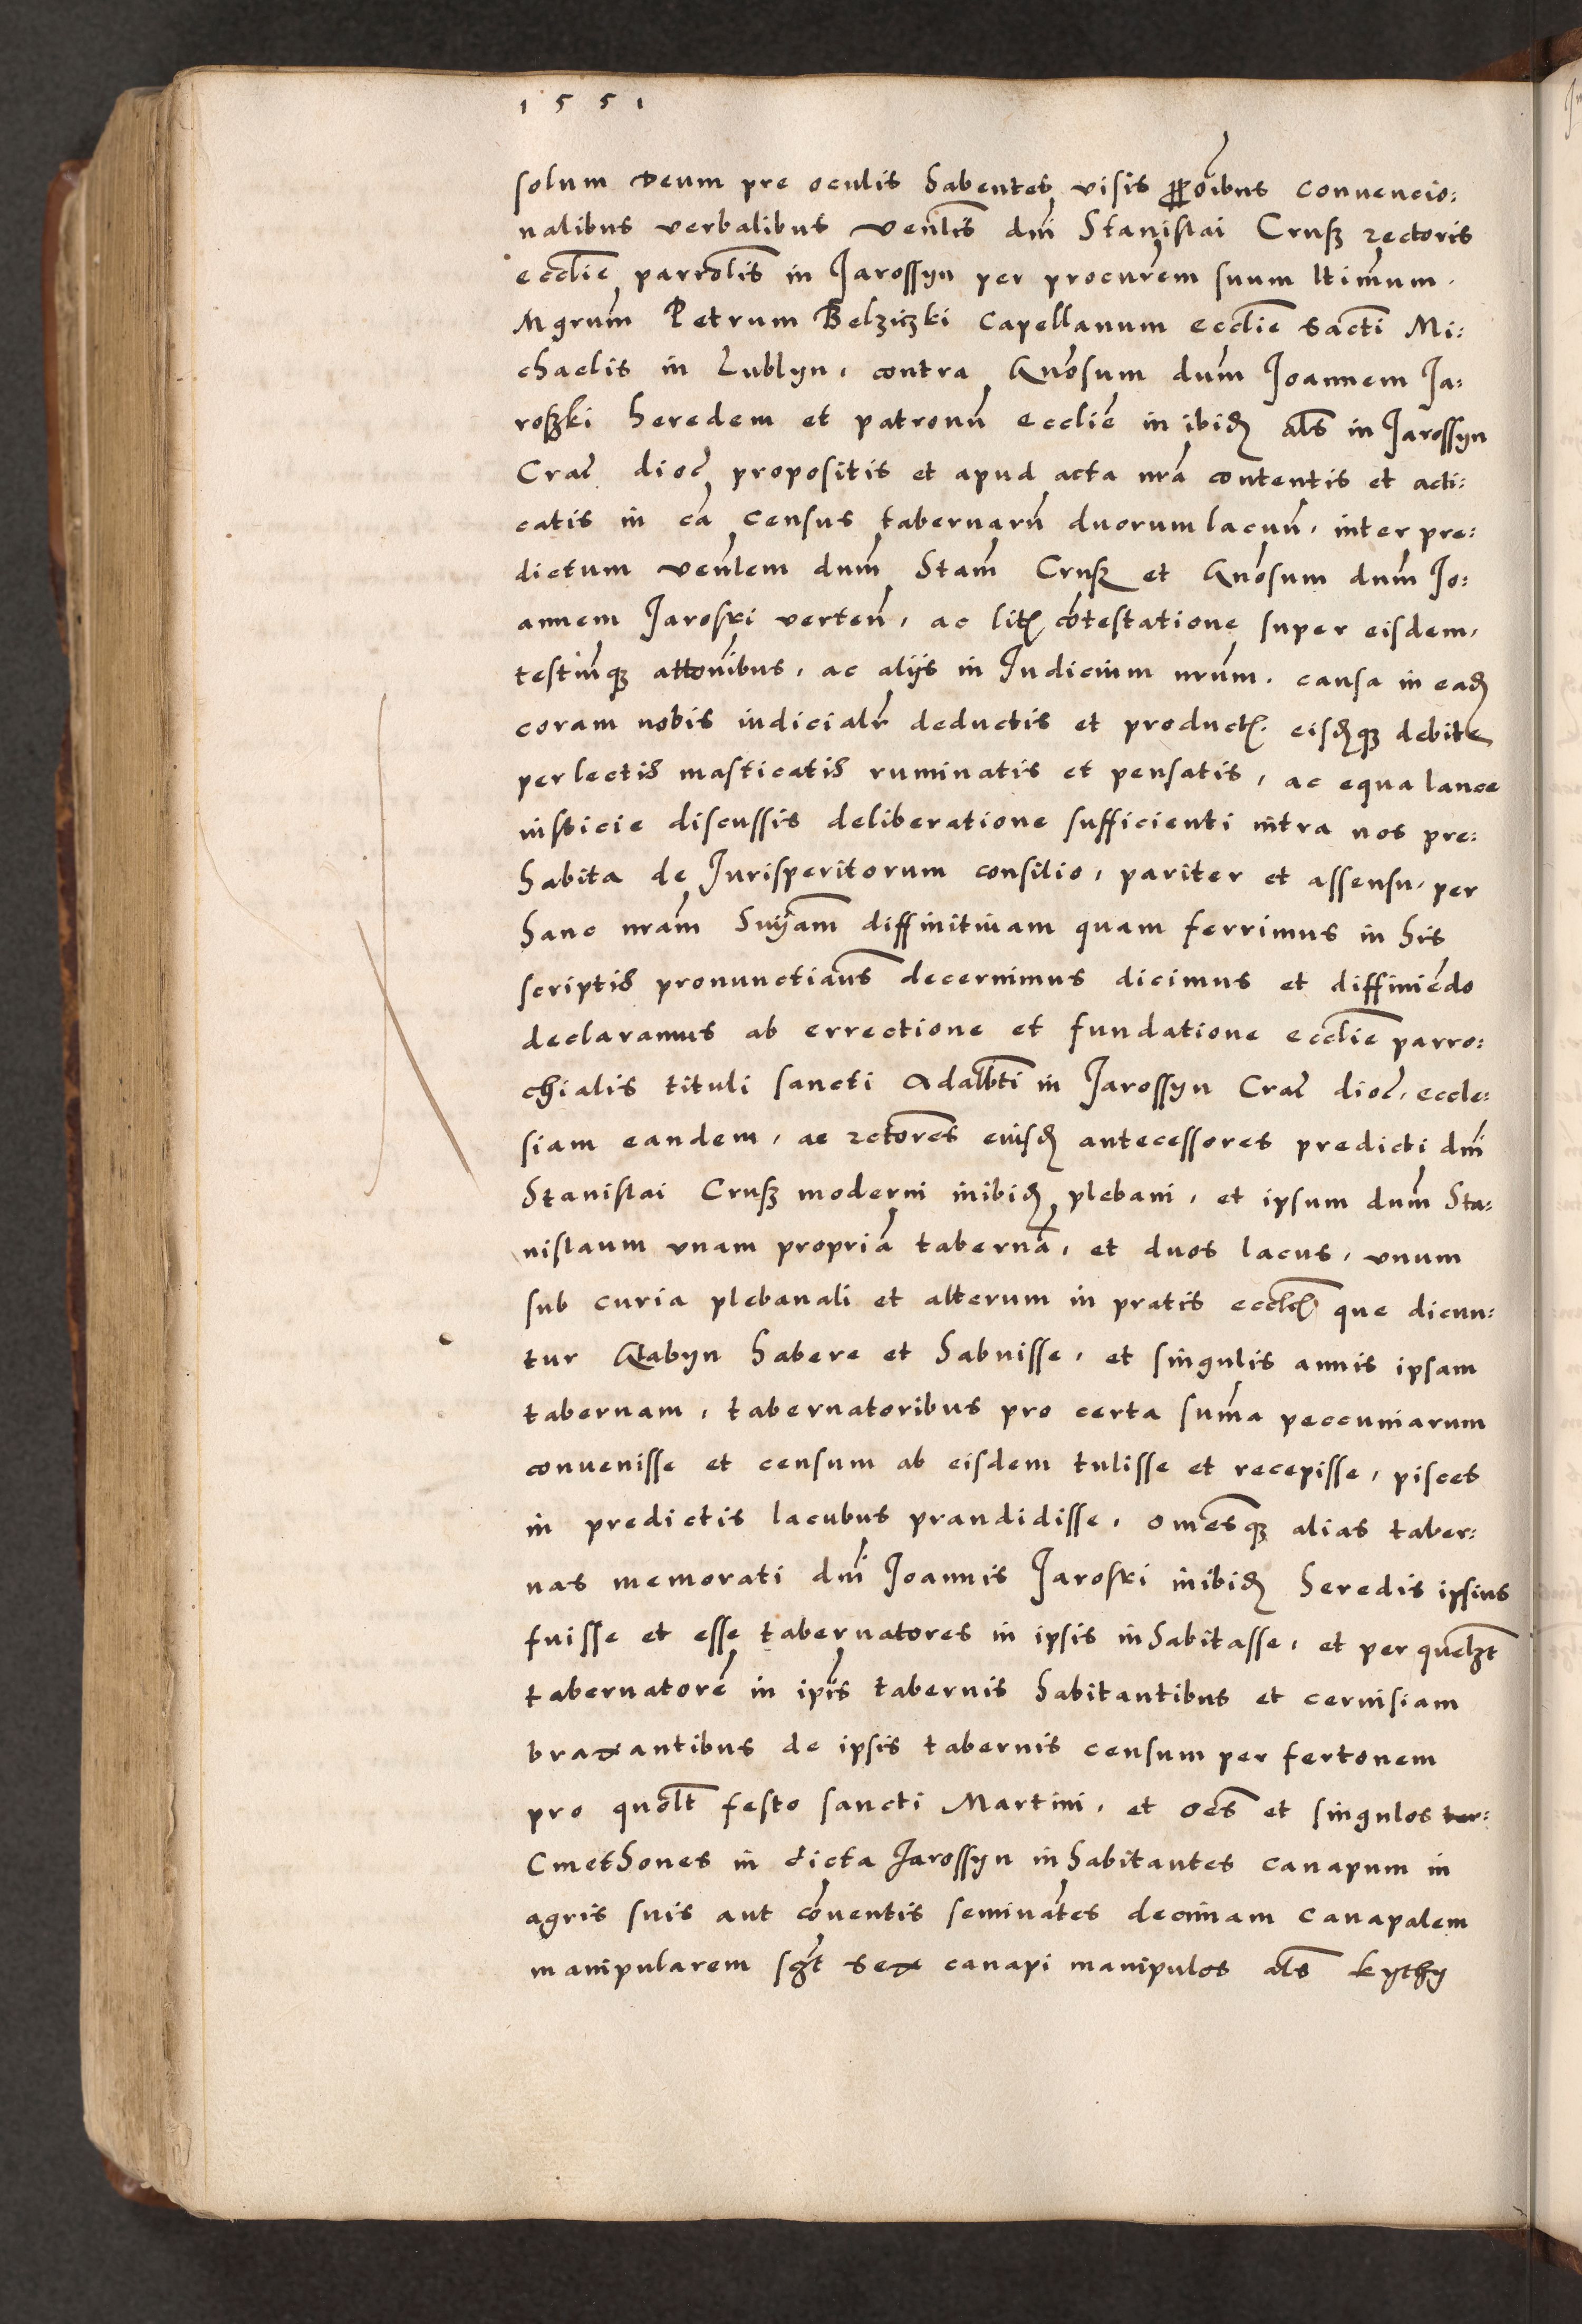 1551
solum deum pre oculis habentes, visis ꝓpõibus convencio:
nalibus verbalibus venlis dni Stanislai Crusz rectoris
ecclie parrolis in Jarossyn per procurem suum ltimum.
Mgrum Petrum Belziczki Capellanum ecclie sancti Mi:
chaelis in Lublyn, contra Gnosum dum Joannem Ja:
roszki heredem et patronu ecclie in ibid als in Jarossyn
Crac dioc propositis et apud acta nra contentis et acti:
catis in ca census tabernaru duorum lacuu, inter pre:
dictum venlem dum Stam Crusz et Gnosum dum Jo:
annem Jaroski verten, ac lit contestatione super eisdem,
testiumqz attonibus, ac alijs in Judicium nrum, causa in ead
coram nobis iudicialr deductis et product. eisdqz debite
perlectis masticatis ruminatis et pensatis, ac equa lance
iusticie discussis deliberatione sufficienti intra nos pre:
habita de Jurisperitorum consilio, pariter et assensu, per
hanc nram Snyam diffinitivam quam ferrimus in his
scriptis pronunctiaus decernimus dicimus et diffiniedo
declaramus ab errectione et fundatione ecclie parro:
chialis tituli sancti Adalbti in Jarossyn Crac dioc, eccle:
siam eandem, ac rectores eiusd antecessores predicti dni
Stanislai Crusz moderni inibid plebani, et ipsum dum Sta:
nislaum unam propria taberna, et duos lacus, unum
sub curia plebanali et alterum in pratis eccles que dicun:
tur Gtabyn habere et habuisse, et singulis annis ipsam
tabernam, tabernatoribus pro certa suma peccuniarum
convenisse et censum ab eisdem tulisse et recepisse, pisces
in predictis lacubus prandidisse, omesqz alias taber:
nas memorati dni Joannis Jaroski inibid heredis ipsius
fuisse et esse tabernatores in ipsis inhabitasse, et per quelzt
tabernatore in ipis tabernis habitantibus et cervisiam
braxantibus de ipsis tabernis censum per fertonem
pro quolt festo sancti Martini, et oes et singulos ter:
Cmethones in dicta Jarossyn inhabitantes canapum in
agris suis aut conventis seminates decimam canapalem
manipularem sct sex canapi manipulos als kythy